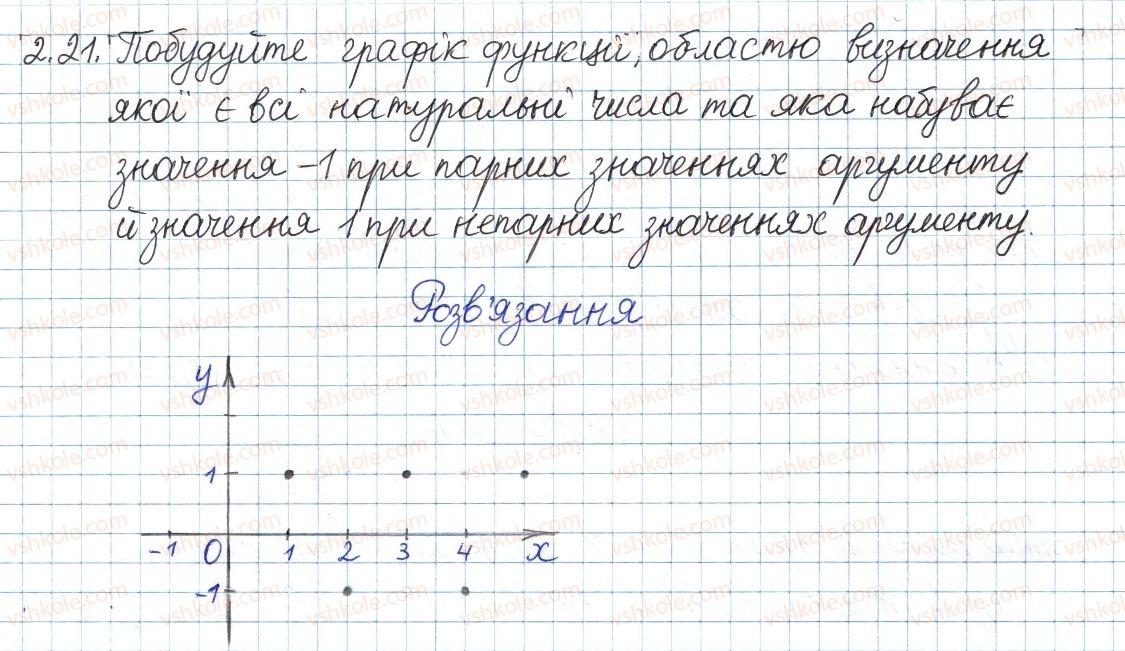 2.21. Побудуйте графік функції, областю визначення
якої є всі натуральні числа та яка набуває
значення -1 при парних значеннях аргументу
й значення 1 при непарних значеннях аргументу.
Розв'язання
y
1
-1 0 1 2 3 4 x
-1
vshkole.com